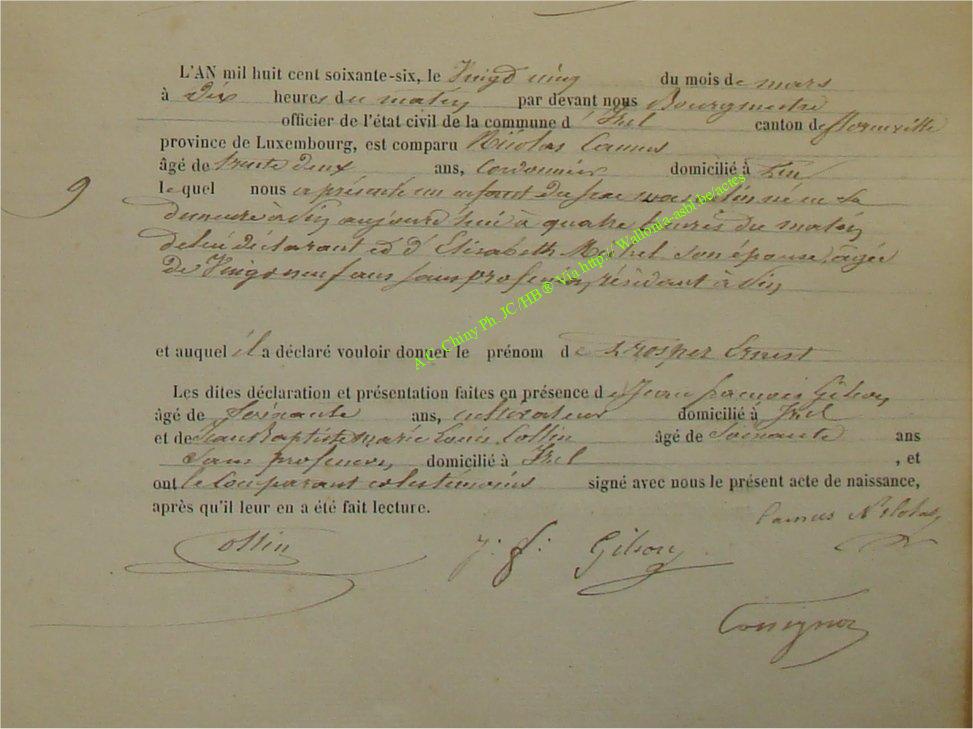 L'AN mil huit cent soixante-six, le Vingt cinq du mois de mars
à Dix heures du matin par devant nous Bourgmestre
officier de l'état civil de la commune d'Izel canton de Florenville
province de Luxembourg, est comparu Nicolas Camus
âgé de trente deux ans, Cordonnier domicilié à
9
le quel nous a présenté un enfant du sexe masculin né en sa
demeure à aujourd'hui à quatre heures du matin
de lui déclarant et d'Elisabeth son épouse, agée
de Vingt neuf ans sans profession, résidant à
A.C. Chiny Ph. JC/HB® Via http://Wallonia-asbl.be/actes
et auquel il a déclaré vouloir donner le prénom de Prosper Ernest
Les dites déclaration et présentation faites en présence de Jean François Gilson
âgé de Soixante ans, cultivateur domicilié à Izel
et de Jean Baptiste Marie Louis Collin âgé de Soixante ans
Sans profession, domicilié à Izel , et
ont le Comparant et les témoins signé avec nous le présent acte de naissance,
après qu'il leur en a été fait lecture.
Camus Nicolas
Collin J: f: Gilson